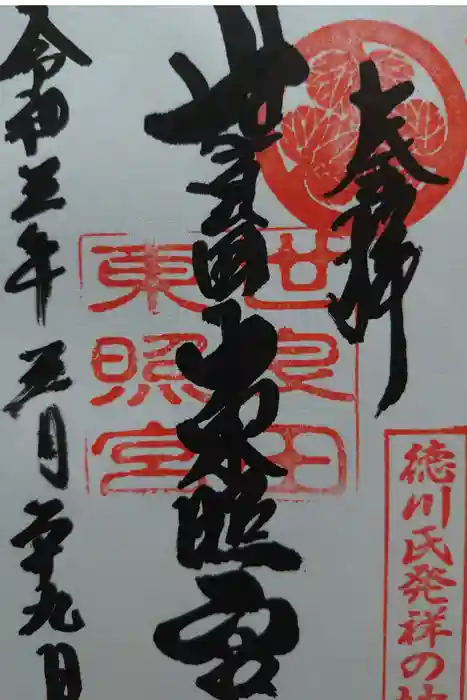 奉拝
徳川氏発祥の地
世良田東照宮
世良田
東照宮
令和三年五月廿九日